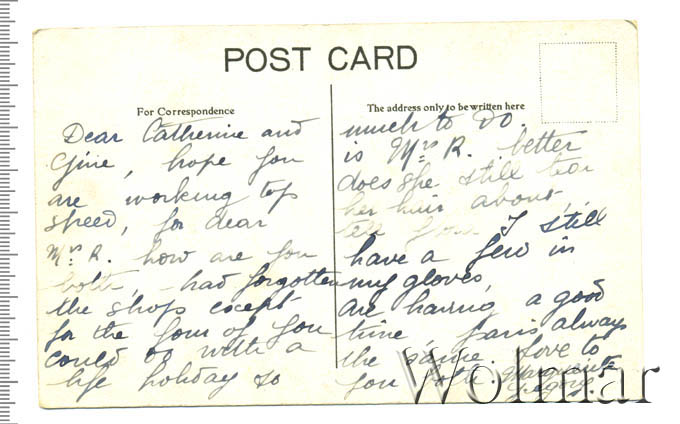 POST CARD
For Correspondence
Dear Catherine and
Gine, hope you
are working top
speed, for dear
Mrs R. how are you
both, - had forgotten
the shops except
for the four of you
could do with a
life holiday so
The address only to be written here
much to Do.
is Mrs R. better
does she still tear
her hair about,
tell you. I still
have a few in
my gloves,
are having a good
time, Paris always
the same. Love to
you both. Marguerite
Wolmar